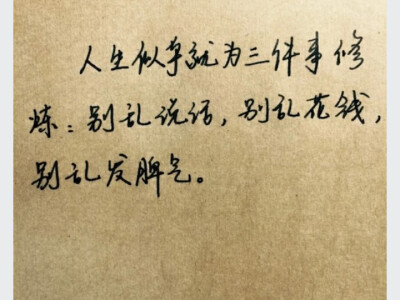 人生似乎就为三件事修
炼：别乱说话，别乱花钱，
别乱发脾气。